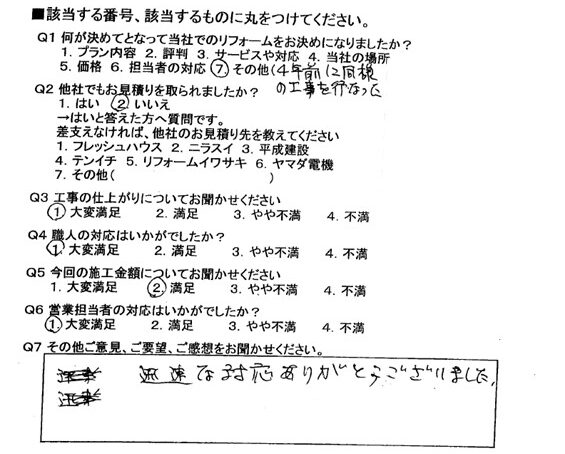 ■該当する番号、該当するものに丸をつけてください。
Q1 何が決めてとなって当社でのリフォームをお決めになりましたか？
1. プラン内容 2. 評判 3. サービスや対応 4. 当社の場所
5. 価格 6. 担当者の対応 ⑦ その他(4年前に同様
の工事を行なった
Q2 他社でもお見積りを取られましたか？
1. はい ② いいえ
→はいと答えた方へ質問です。
差支えなければ、他社のお見積り先を教えてください
1. フレッシュハウス 2. ニラスイ 3. 平成建設
4. テンイチ 5. リフォームイワサキ 6. ヤマダ電機
7. その他( )
Q3 工事の仕上がりについてお聞かせください
① 大変満足 2. 満足 3. やや不満 4. 不満
Q4 職人の対応はいかがでしたか？
① 大変満足 2. 満足 3. やや不満 4. 不満
Q5 今回の施工金額についてお聞かせください
1. 大変満足 ② 満足 3. やや不満 4. 不満
Q6 営業担当者の対応はいかがでしたか？
① 大変満足 2. 満足 3. やや不満 4. 不満
Q7 その他ご意見、ご要望、ご感想をお聞かせください。
迅速な対応ありがとうございました。